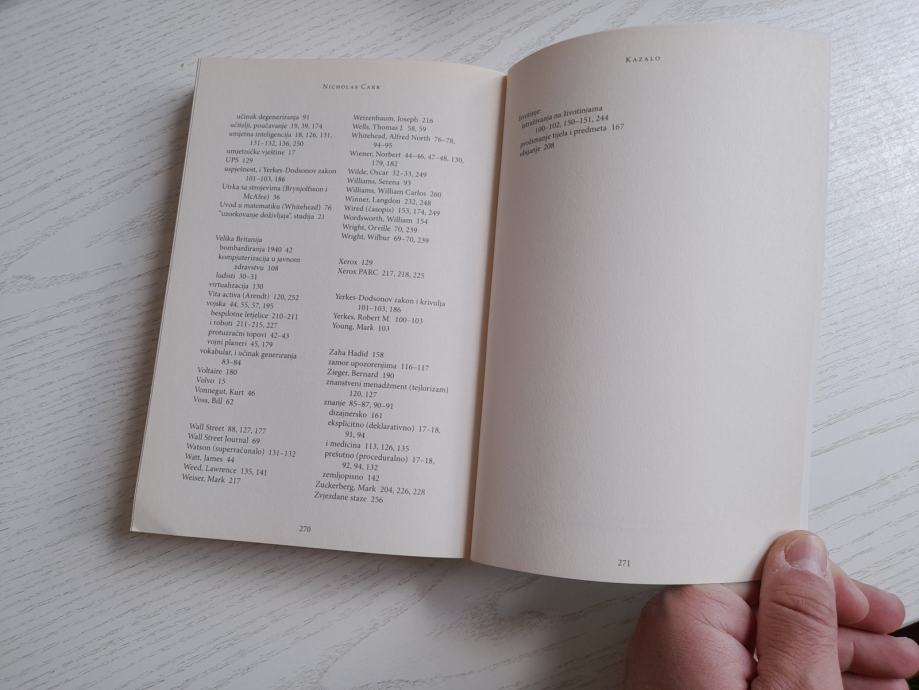 NICHOLAS CARR
učinak degeneriranja 91
učitelji, poučavanje 19, 39, 174
umjetna inteligencija 18, 126, 131,
131–132, 136, 250
umjetničke vještine 17
UPS 129
uspješnost, i Yerkes-Dodsonov zakon
101–103, 186
Utrka sa strojevima (Brynjolfsson i
McAfee) 36
Uvod u matematiku (Whitehead) 76
"uzorkovanje doživljaja", studija 21
Velika Britanija
bombardiranja 1940 42
kompjuterizacija u javnom
zdravstvu 108
ludisti 30–31
virtualizacija 130
Vita activa (Arendt) 120, 252
vojska 44, 55, 57, 195
bespilotne letjelice 210–211
i roboti 211–215, 227
protuzračni topovi 42–43
vojni planeri 45, 179
vokabular, i učinak generiranja
83–84
Voltaire 180
Volvo 15
Vonnegut, Kurt 46
Voss, Bill 62
Wall Street 88, 127, 177
Wall Street Journal 69
Watson (superračunalo) 131–132
Watt, James 44
Weed, Lawrence 135, 141
Weiser, Mark 217
Weizenbaum, Joseph 216
Wells, Thomas J. 58, 59
Whitehead, Alfred North 76–78,
94–95
Wiener, Norbert 44–46, 47–48, 130,
179, 182
Wilde, Oscar 32–33, 249
Williams, Serena 93
Williams, William Carlos 260
Winner, Langdon 232, 248
Wired (časopis) 153, 174, 249
Wordsworth, William 154
Wright, Orville 70, 239
Wright, Wilbur 69–70, 239
Xerox 129
Xerox PARC 217, 218, 225
Yerkes-Dodsonov zakon i krivulja
101–103, 186
Yerkes, Robert M. 100–103
Young, Mark 103
Zaha Hadid 158
zamor upozorenjima 116–117
Zieger, Bernard 190
znanstveni menadžment (tejlorizam)
120, 127
znanje 85–87, 90–91
dizajnersko 161
eksplicitno (deklarativno) 17–18,
91, 94
i medicina 113, 126, 135
prešutno (proceduralno) 17–18,
92, 94, 132
zemljopisno 142
Zuckerberg, Mark 204, 226, 228
Zvjezdane staze 256
270
KAZALO
životinje:
istraživanja na životinjama
100–102, 150–151, 244
prožimanje tijela i predmeta 167
ubijanje 208
271